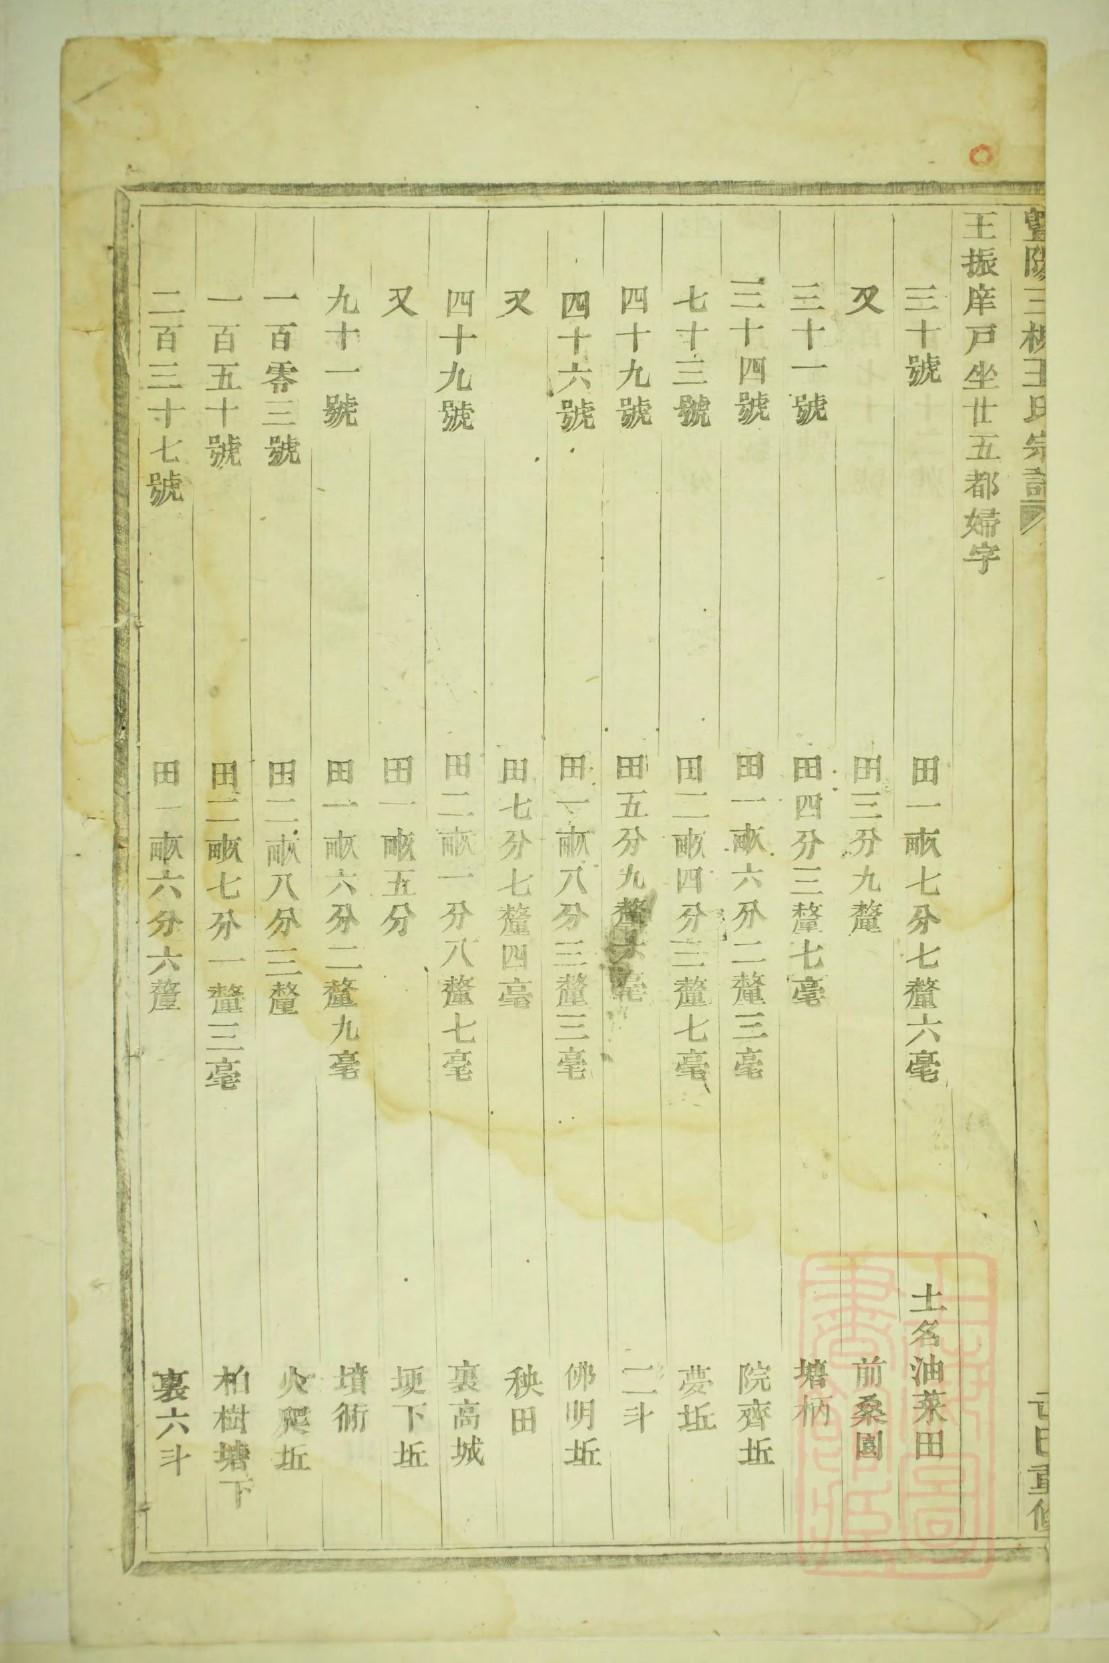 暨陽三槐王氏宗譜
重修
王振庠戶坐廿五都婦字
三十號 田一畝七分七釐六毫 土名油菜田
又 田三分九釐 前桑園
三十一號 田四分三釐七毫 塘柄
三十四號 田一畝六分二釐三毫 院齊坵
七十三號 田二畝四分三釐七毫 夢坵
四十九號 田五分九釐六毫 二斗
四十六號 田一畝八分三釐三毫 佛明坵
又 田七分七釐四毫 秧田
四十九號 田二畝一分八釐七毫 裏高城
又 田一畝五分 埂下坵
九十一號 田一畝六分二釐九毫 墳衕
一百零三號 田二畝八分三釐 火爬坵
一百五十號 田二畝七分一釐三毫 柏樹塘下
二百三十七號 田一畝六分六釐 裏六斗